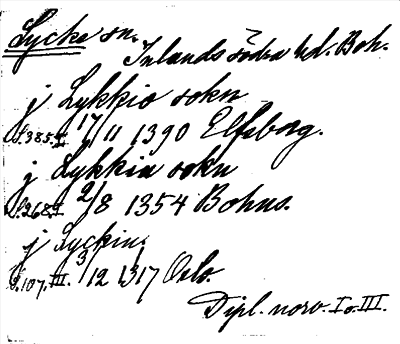 Lycke sn.
Inlands södra hd. Boh.
j Lykkio sokn
S. 385. I 17/11 1390 Elfsborg.
j Lykkia sokn
S. 268. I 2/8 1354 Bohus.
j Lyckin.
S. 107. III. 3/12 1317 Oslo.
Dipl. norv. I o. III.